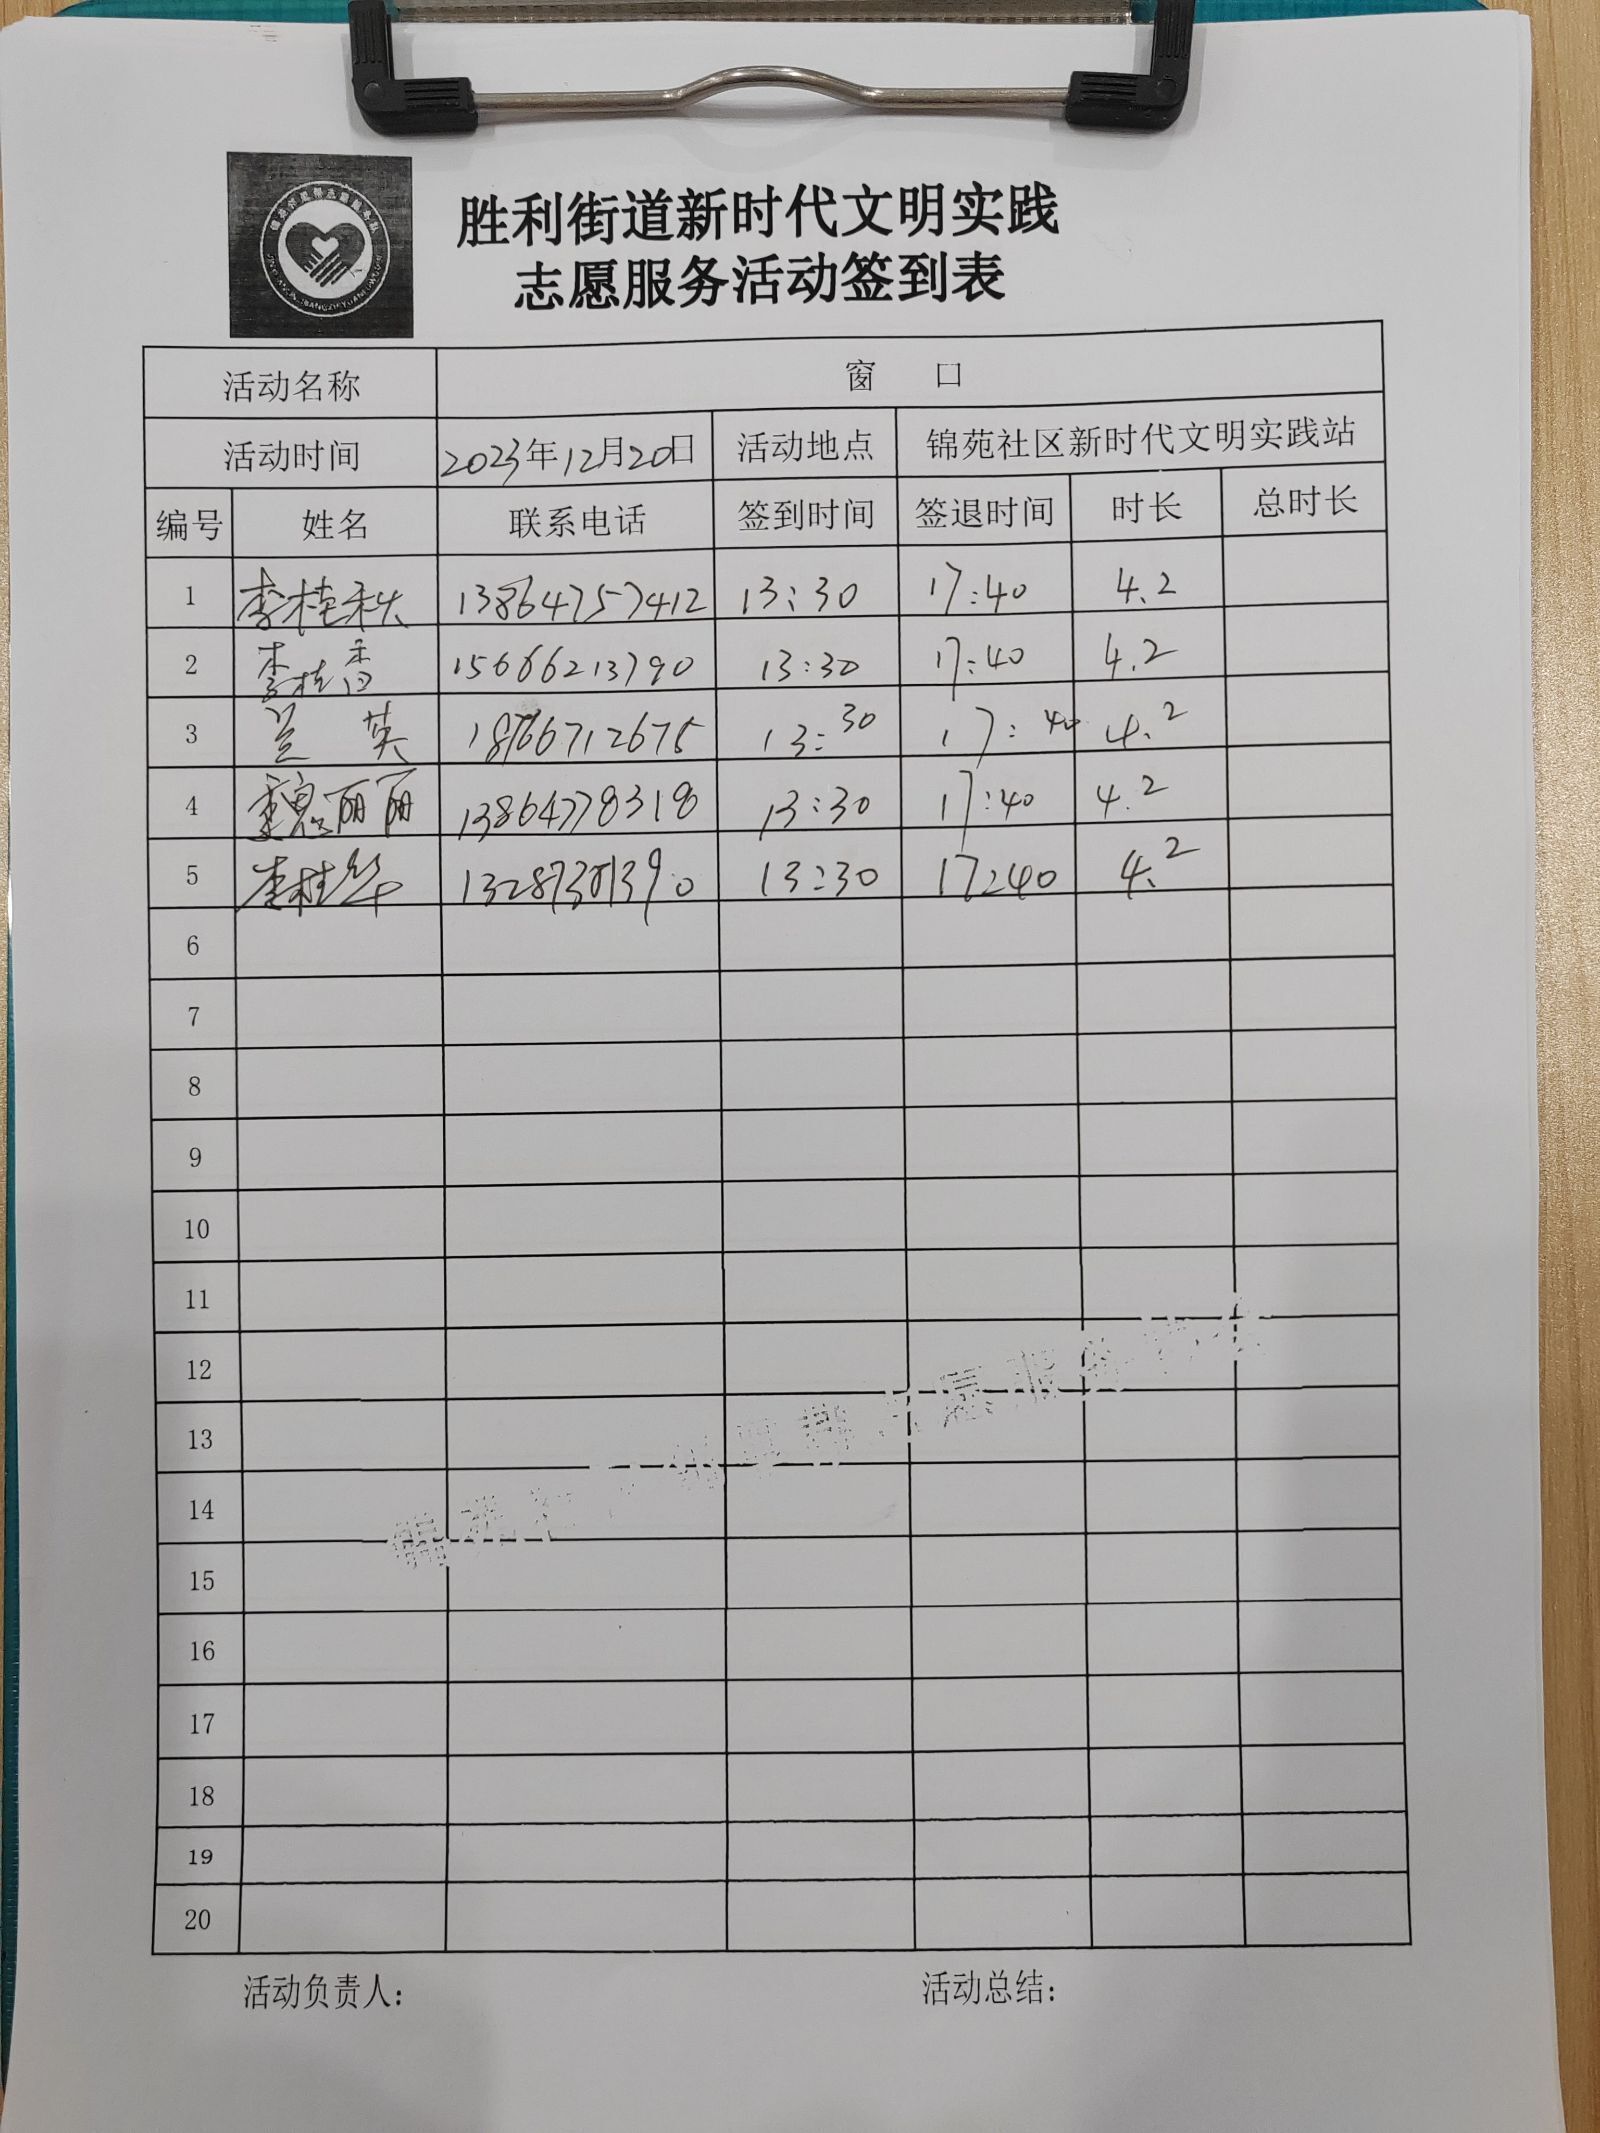 胜利街道新时代文明实践
志愿服务活动签到表
活动名称 窗 口
活动时间 2023年12月20日 活动地点 锦苑社区新时代文明实践站
编号 姓名 联系电话 签到时间 签退时间 时长 总时长
1 李桂秋 13864757412 13:30 17:40 4.2
2 李桂香 15666213790 13:30 17:40 4.2
3 兰英 18766712675 13:30 17:40 4.2
4 魏丽丽 13864778318 13:30 17:40 4.2
5 李桂华 13:30 17:40 4.2
6
7
8
9
10
11
12
13
14
15
16
17
18
19
20
活动负责人: 活动总结: